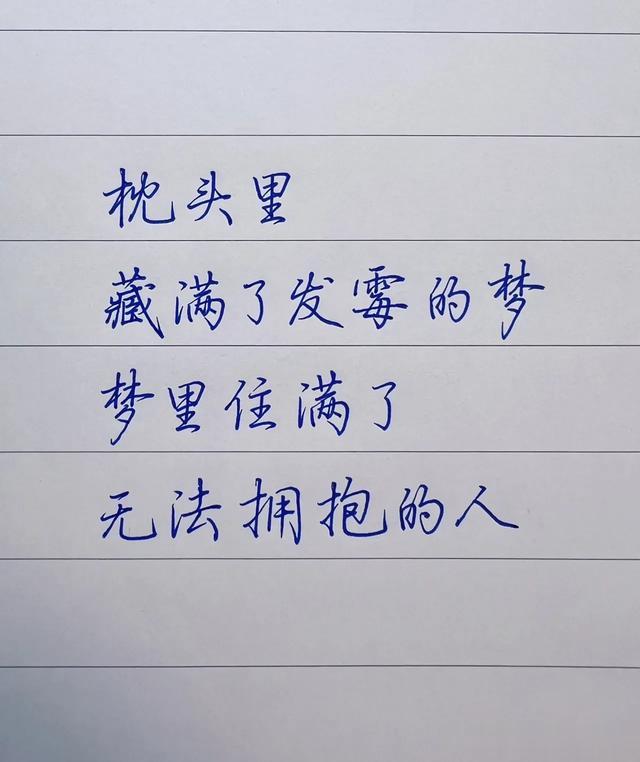 枕头里
藏满了发霉的梦
梦里住满了
无法拥抱的人